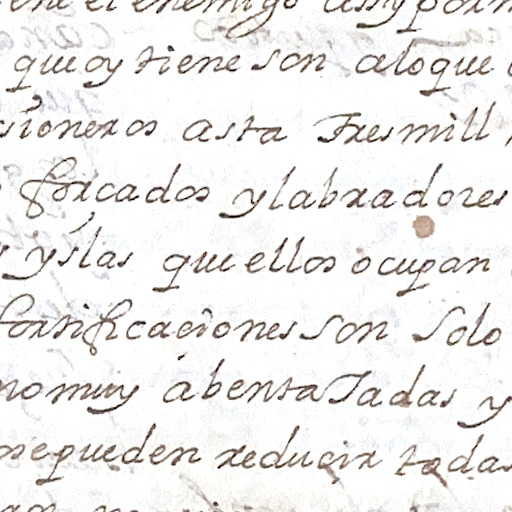 el enemigo assy por
que oy tiene son aloque
sioneros asta tres mill
forcados y labradores
yslas que ellos ocupan
fortificaçiones son solo
no muy abentaJadas y
se pueden reduçir todas